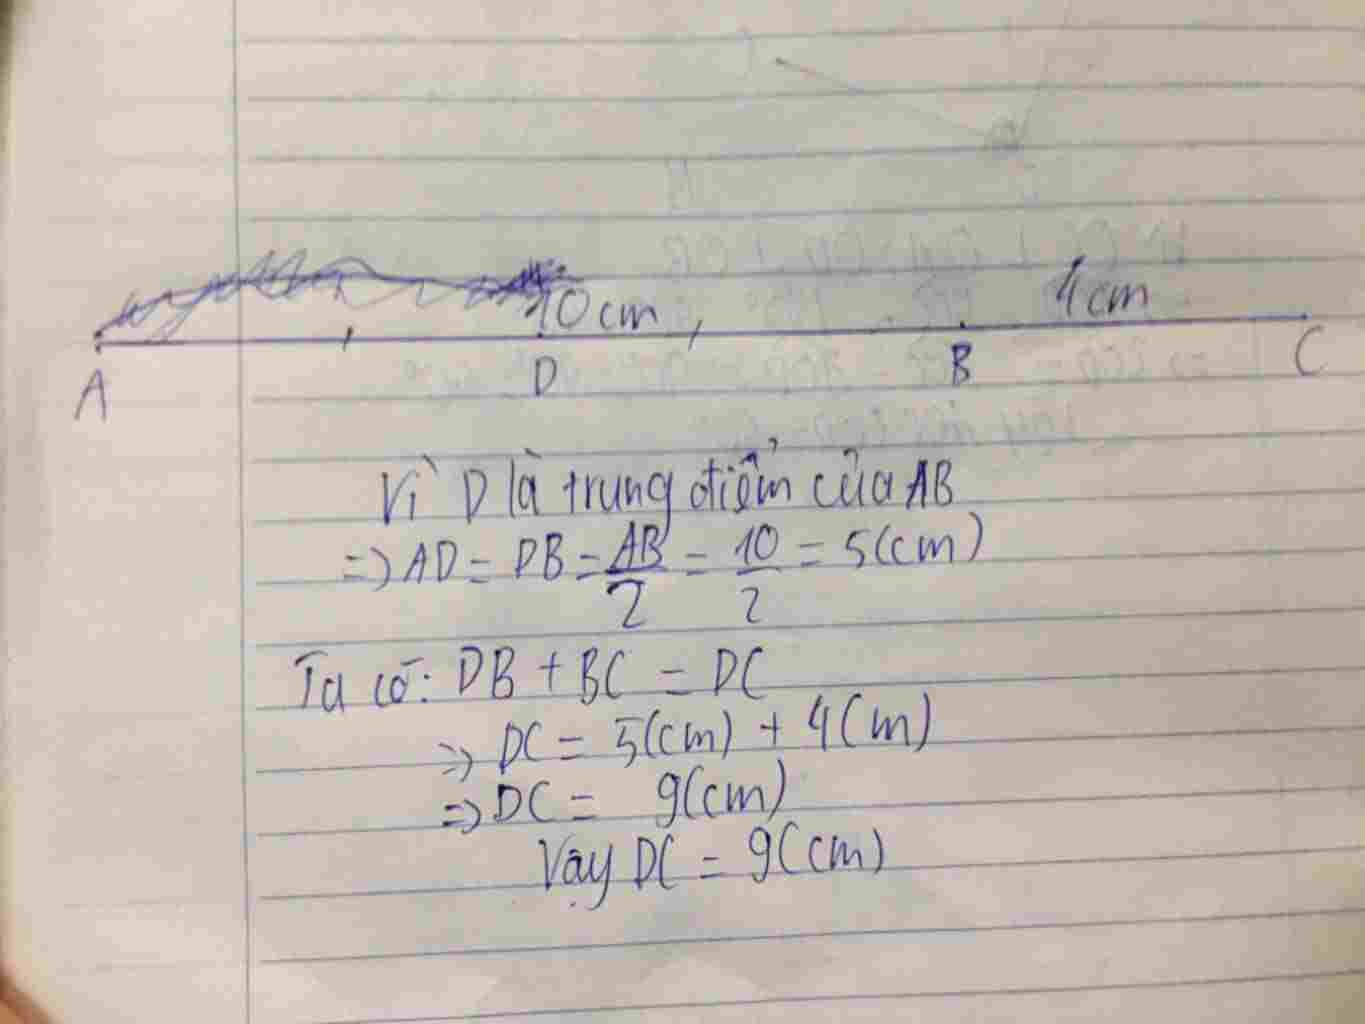 10cm 4cm
A D B C
Vì D là trung điểm của AB
=> AD = DB = AB/2 = 10/2 = 5(cm)
Ta có: DB + BC = DC
=> DC = 5(cm) + 4(cm)
=> DC = 9(cm)
Vậy DC = 9(cm)